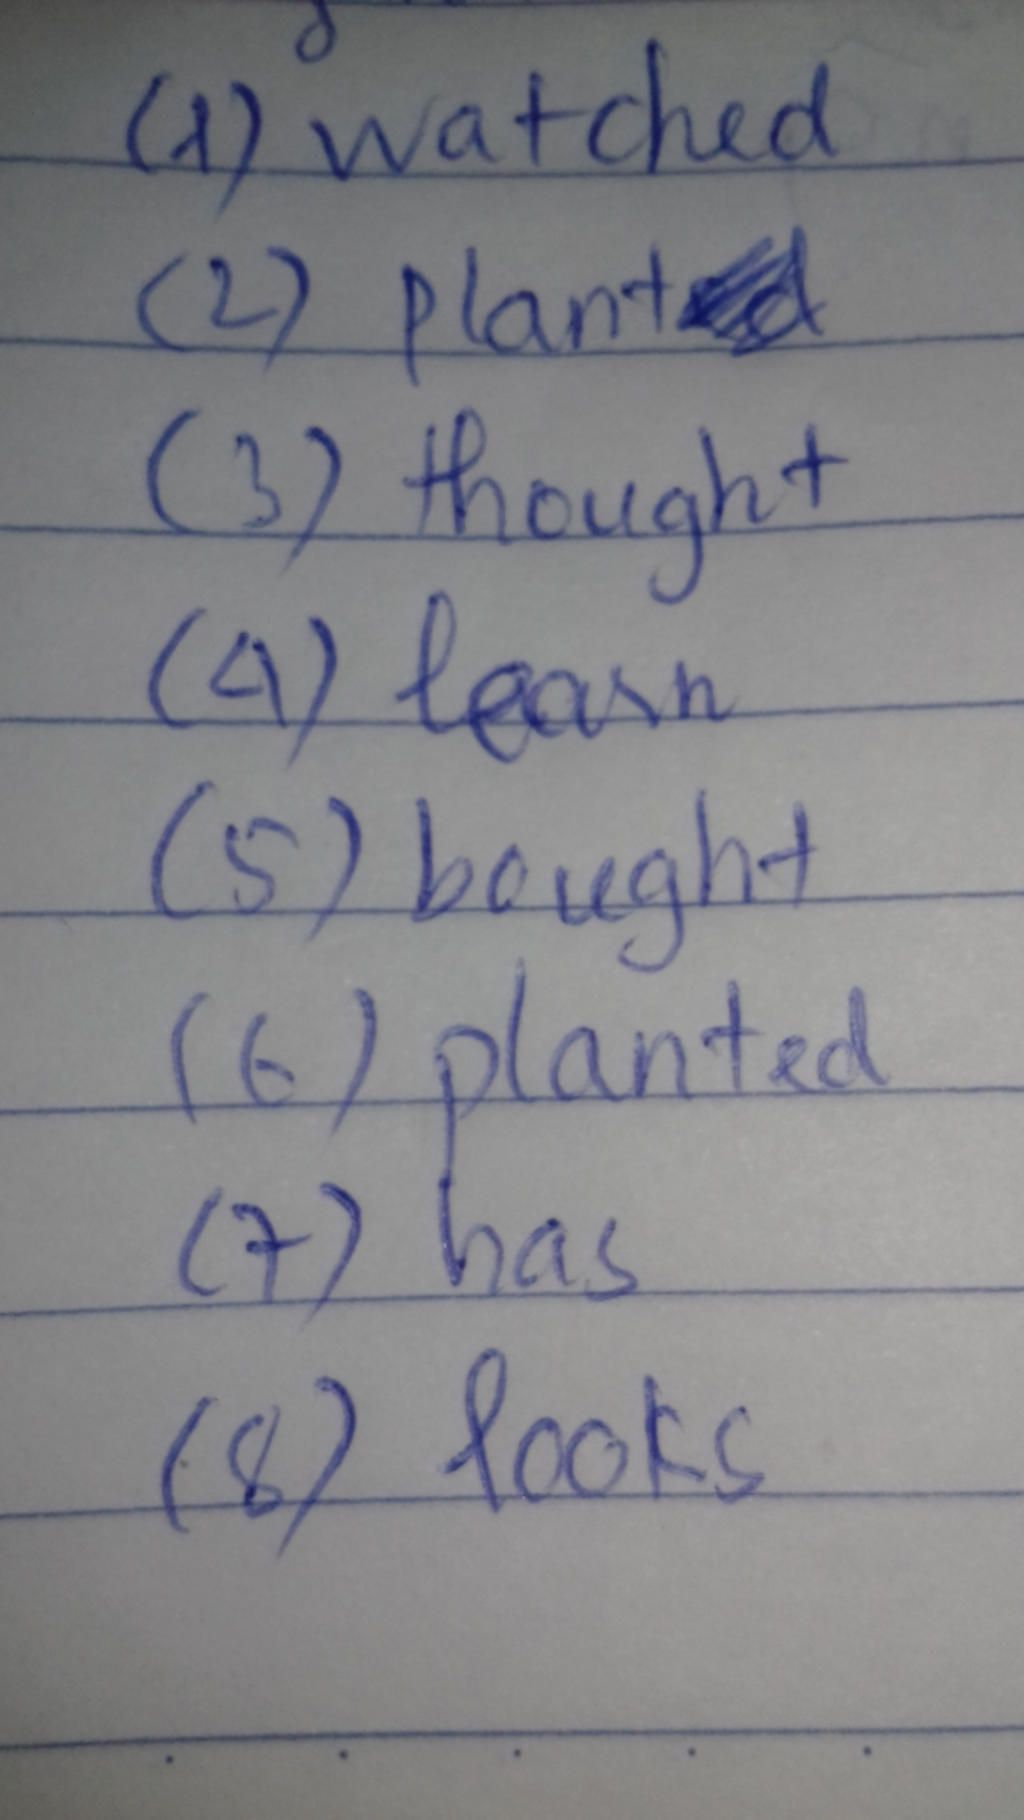 (1) watched
(2) plant
(3) thought
(4) learn
(5) bought
(6) planted
(7) has
(8) looks